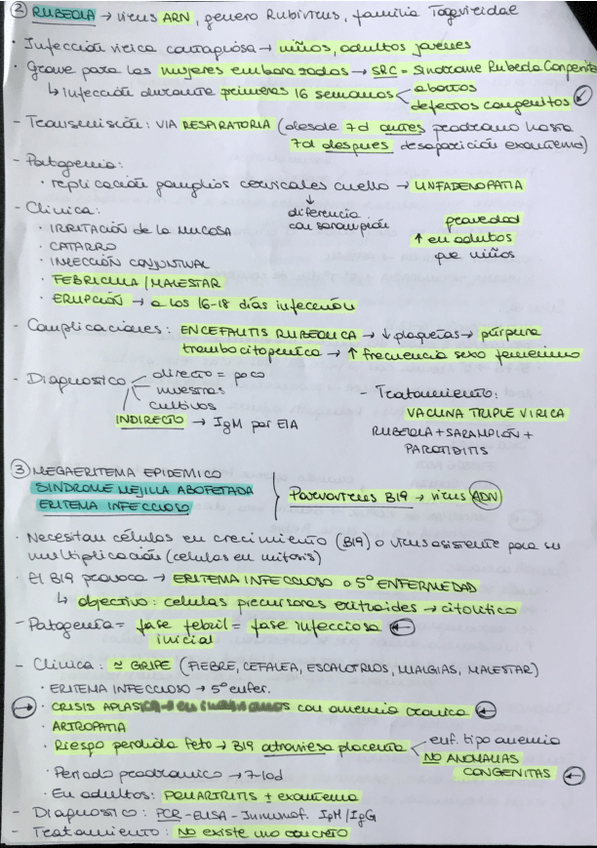 ② RUBEOLA → virus ARN, genero Rubivirus, familia Togaviridae
· Infección vírica contagiosa → niños, adultos jovenes
· Grave para las mujeres embarazadas → SRC = Sindrome Rubeola Congenita
↳ infección durante primeras 16 semanas < abortos
defectos congenitos
- Transmisión: VIA RESPIRATORIA (desde 7d antes prodromo hasta
7d despues desaparición exantema)
- Patogenia:
· replicación ganglios cervicales cuello → LINFADENOPATIA
↓
diferencia
con sarampión
gravedad
↑ en adultos
que niños
- Clinica:
· IRRITACIÓN de la MUCOSA
· CATARRO
· INYECCIÓN CONJUNTIVAL
· FEBRICULA / MALESTAR
· ERUPCIÓN → a los 16-18 días infección
- Complicaciones: ENCEFALITIS RUBEOLICA → ↓ plaquetas → púrpura
trombocitopenica → ↑ frecuencia sexo femenino
- Diagnostico directo = poco
muestras
cultivos
INDIRECTO → IgM por EIA
- Tratamiento:
VACUNA TRIPLE VIRICA
RUBEOLA + SARAMPIÓN +
PAROTIDITIS
③ MEGAERITEMA EPIDEMICO
SINDROME MEJILLA ABOFETADA
ERITEMA INFECCIOSO
Parvovirus B19 → virus ADN
· Necesitan células en crecimiento (B19) o virus asistente para su
multiplicación (celulas en mitosis)
· El B19 provoca → ERITEMA INFECCIOSO o 5º ENFERMEDAD
↳ objectivo: celulas precursoras eritroides → citolitico
- Patogenia = fase febril = fase infecciosa ←
inicial
- Clinica: ≃ GRIPE (FIEBRE, CEFALEA, ESCALOFRIOS, MIALGIAS, MALESTAR)
· ERITEMA INFECCIOSO → 5º enfer.
→ · CRISIS con anemia cronica ←
· ARTROPATIA
· Riesgo perdida feto → B19 atraviesa placenta < enf. tipo anemia
NO ANOMALIAS
CONGENITAS ←
· Periodo prodromico → 7-10d
· En adultos: POLIARTRITIS ± exantema
- Diagnostico: PCR - ELISA - Inmunof. IgM/IgG
- Tratamiento: NO existe uno concreto